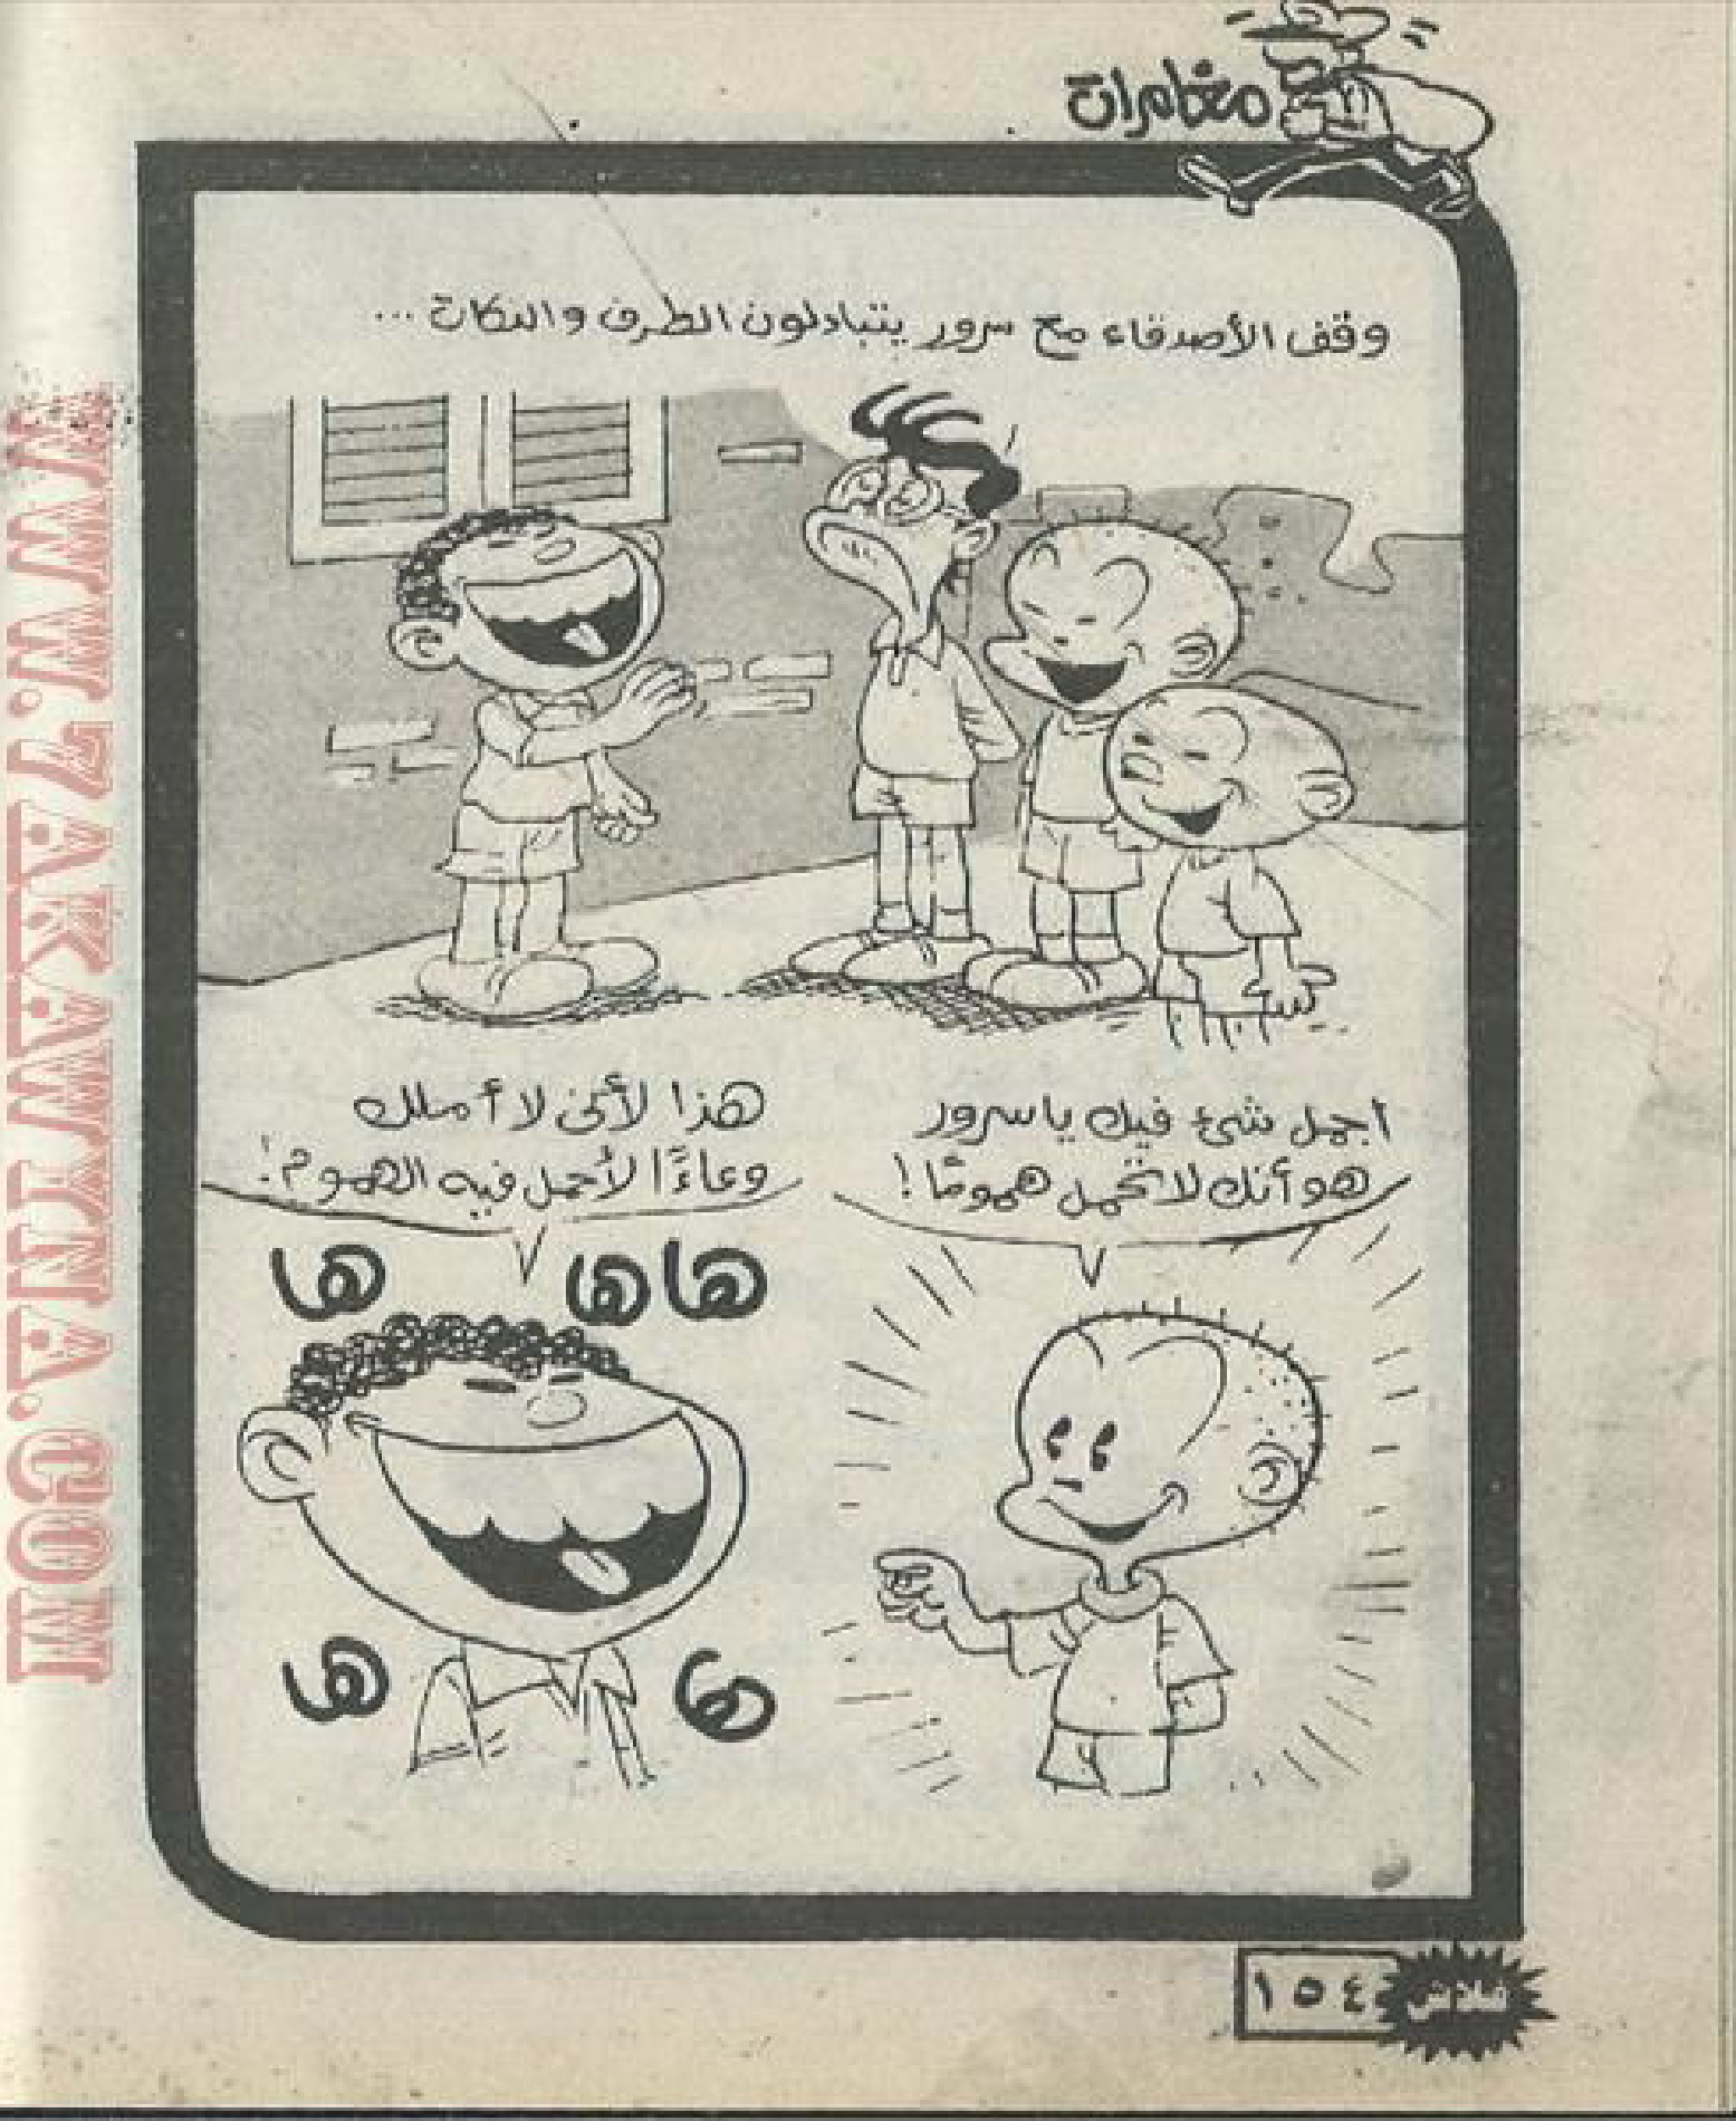 مغامرات
وقف الأصدقاء مع سرور يتبادلون الطرف والنكات ...
أجمل شئ فيك يا سرور
هو أنك لا تحمل همومًا !
هذا لأنى لا أملك
وعاءًا لأحمل فيه الهموم !
ها ها ها
ها ها
١٥٤